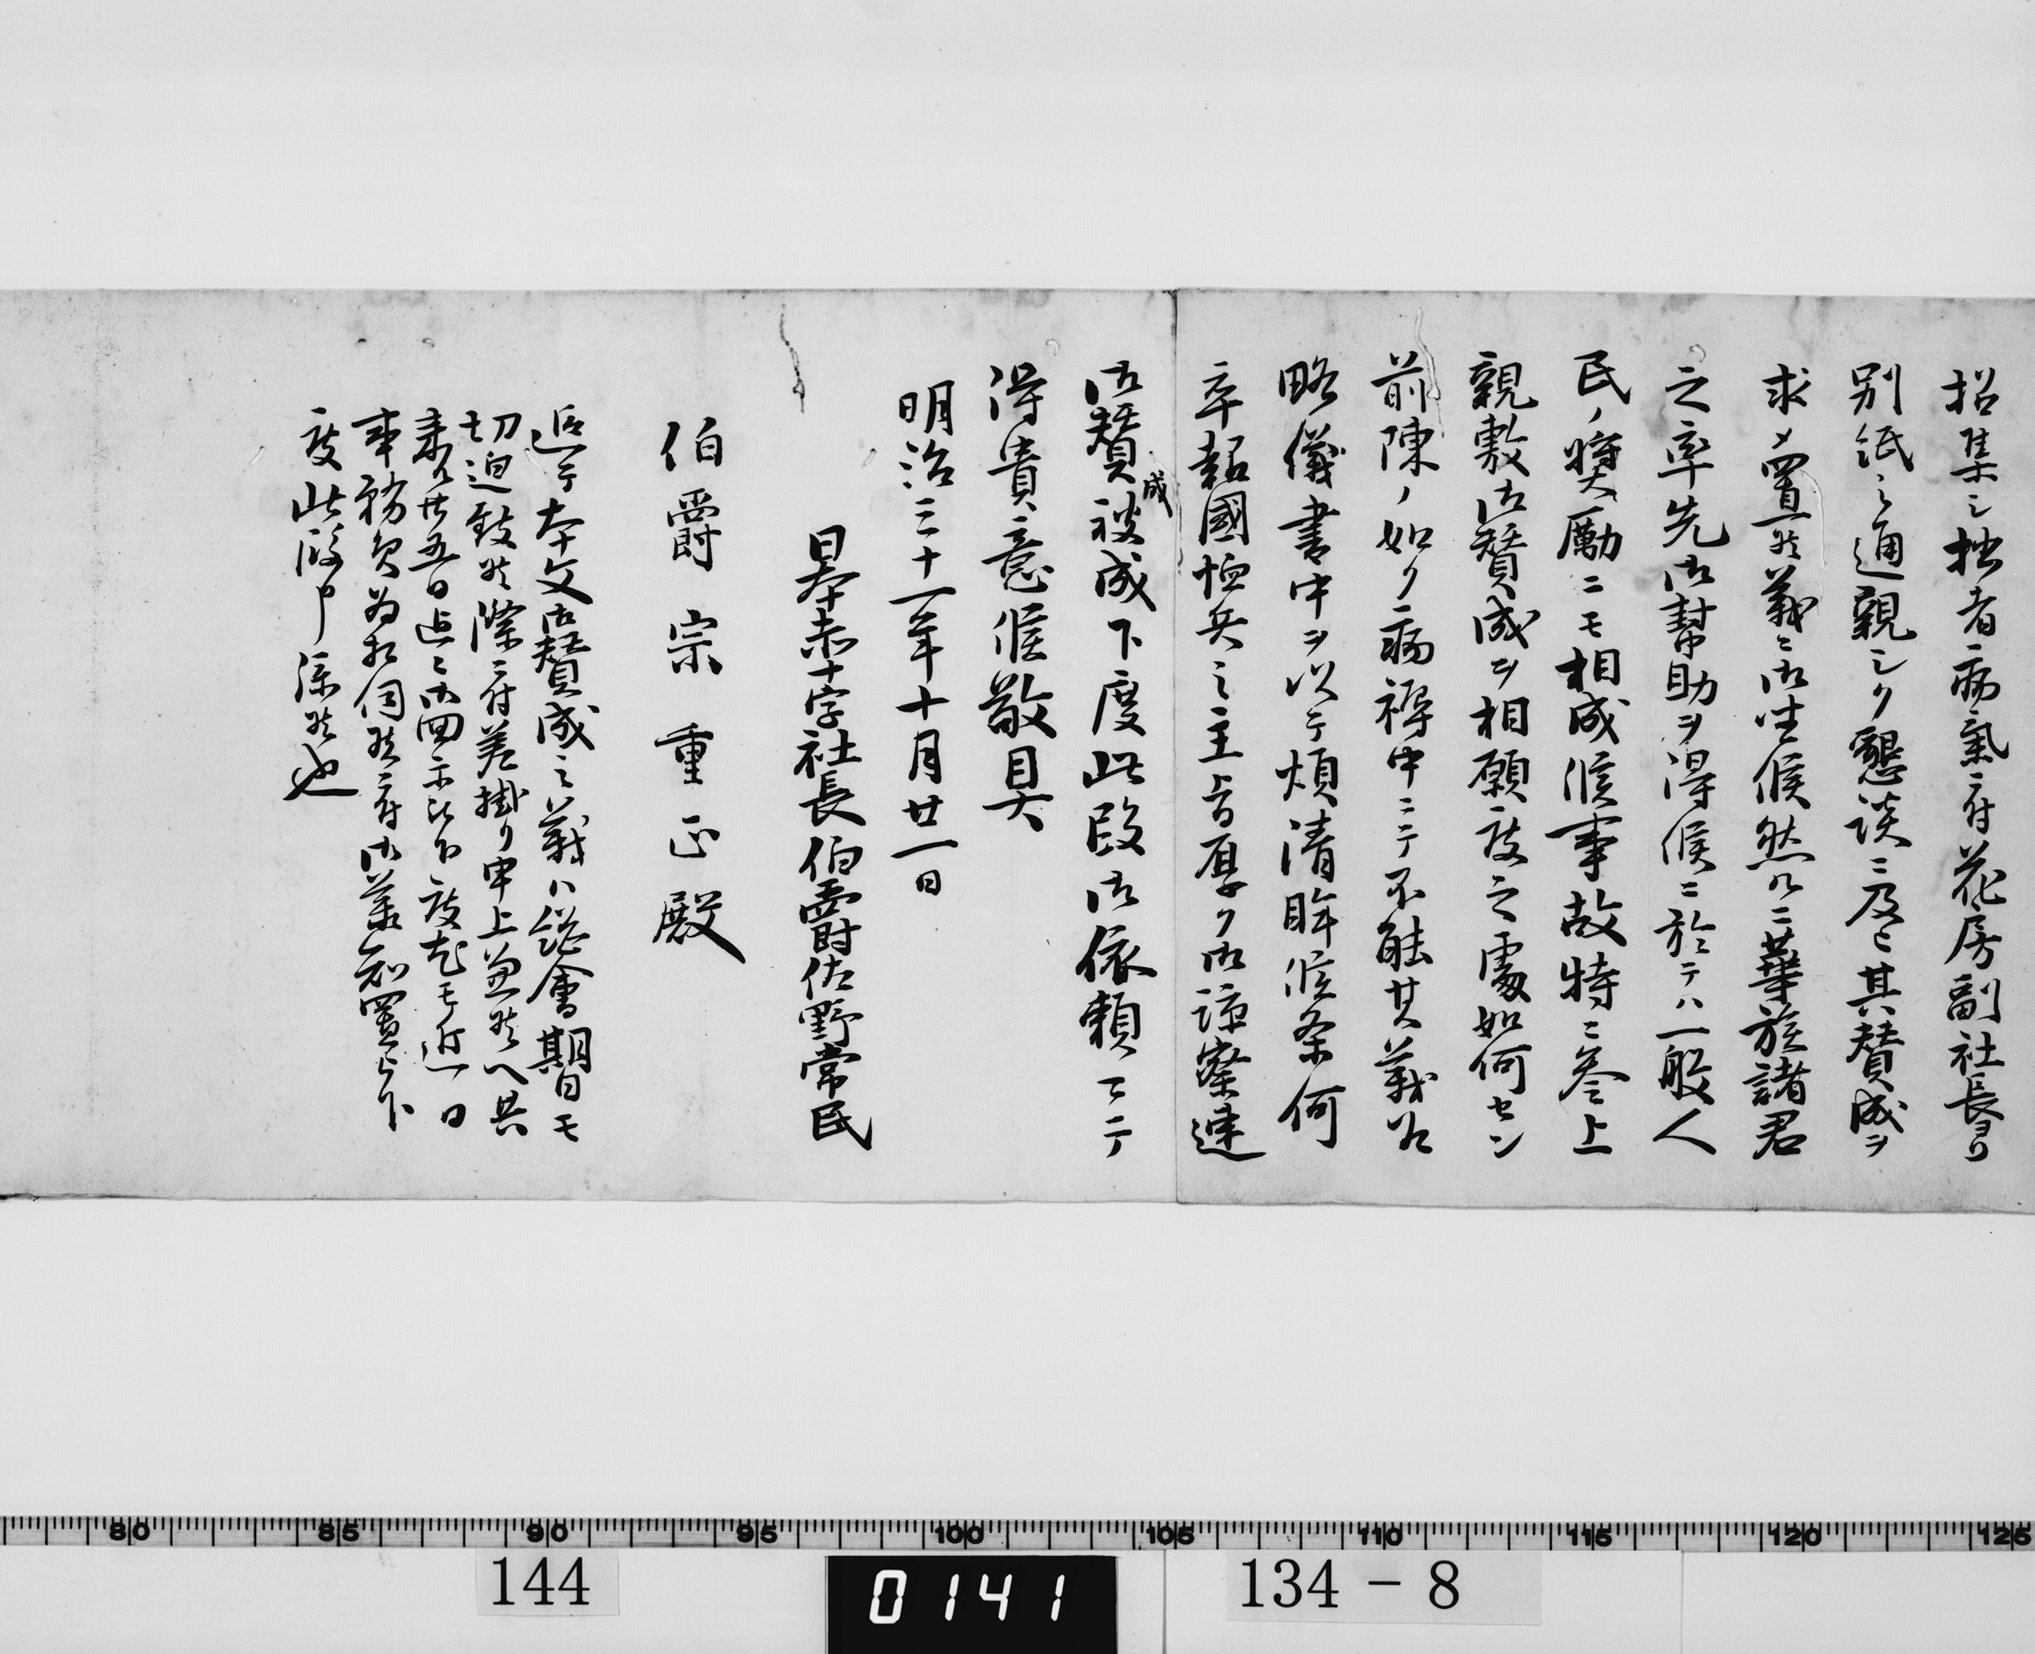 招集シ拙者病氣ニ付花房副社長ヨリ
別紙之通親シク懇談ニ及ヒ其賛成ヲ
求メ置候義ニ御坐候然ルニ華族諸君
之率先御幇助ヲ得候ニ於テハ一般人
民ノ奨勵ニモ相成候事故特ニ参上
親敷御賛成ヲ相願度之處如何セン
前陳ノ如ク病褥中ニテ不能其義乍
略儀書中ヲ以テ煩清眸候条何
卒報國恤兵之主旨厚ク御諒察速
御賛成被成下度此段御依頼マテ
得貴意候敬具
明治三十一年十月廿一日
日本赤十字社長伯爵佐野常民
伯爵宗重正殿
追テ本文御賛成之義ハ総會期日モ
切迫致候際ニ付差掛リ申上兼候ヘ共
来ル廿五日迄ニ御回示被下度尤モ近日
事務員為相伺候ニ付御含置被下
度此段申添候也
144
0141
134-8
80 85 90 95 100 105 110 115 120 125